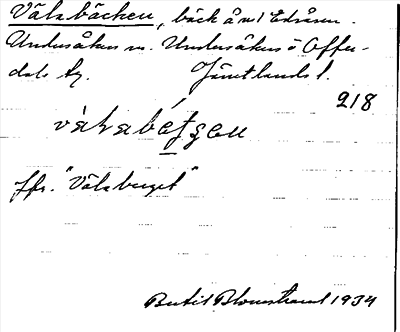 Välabäcken, bäck å v. Edsåsen.
Undersåkers sn. Undersåkers o Offer-
dals tg. Jämtlands l.
218
vàlabétʃen
Jfr. "Välaberget"
Bertil Blomstrand 1934